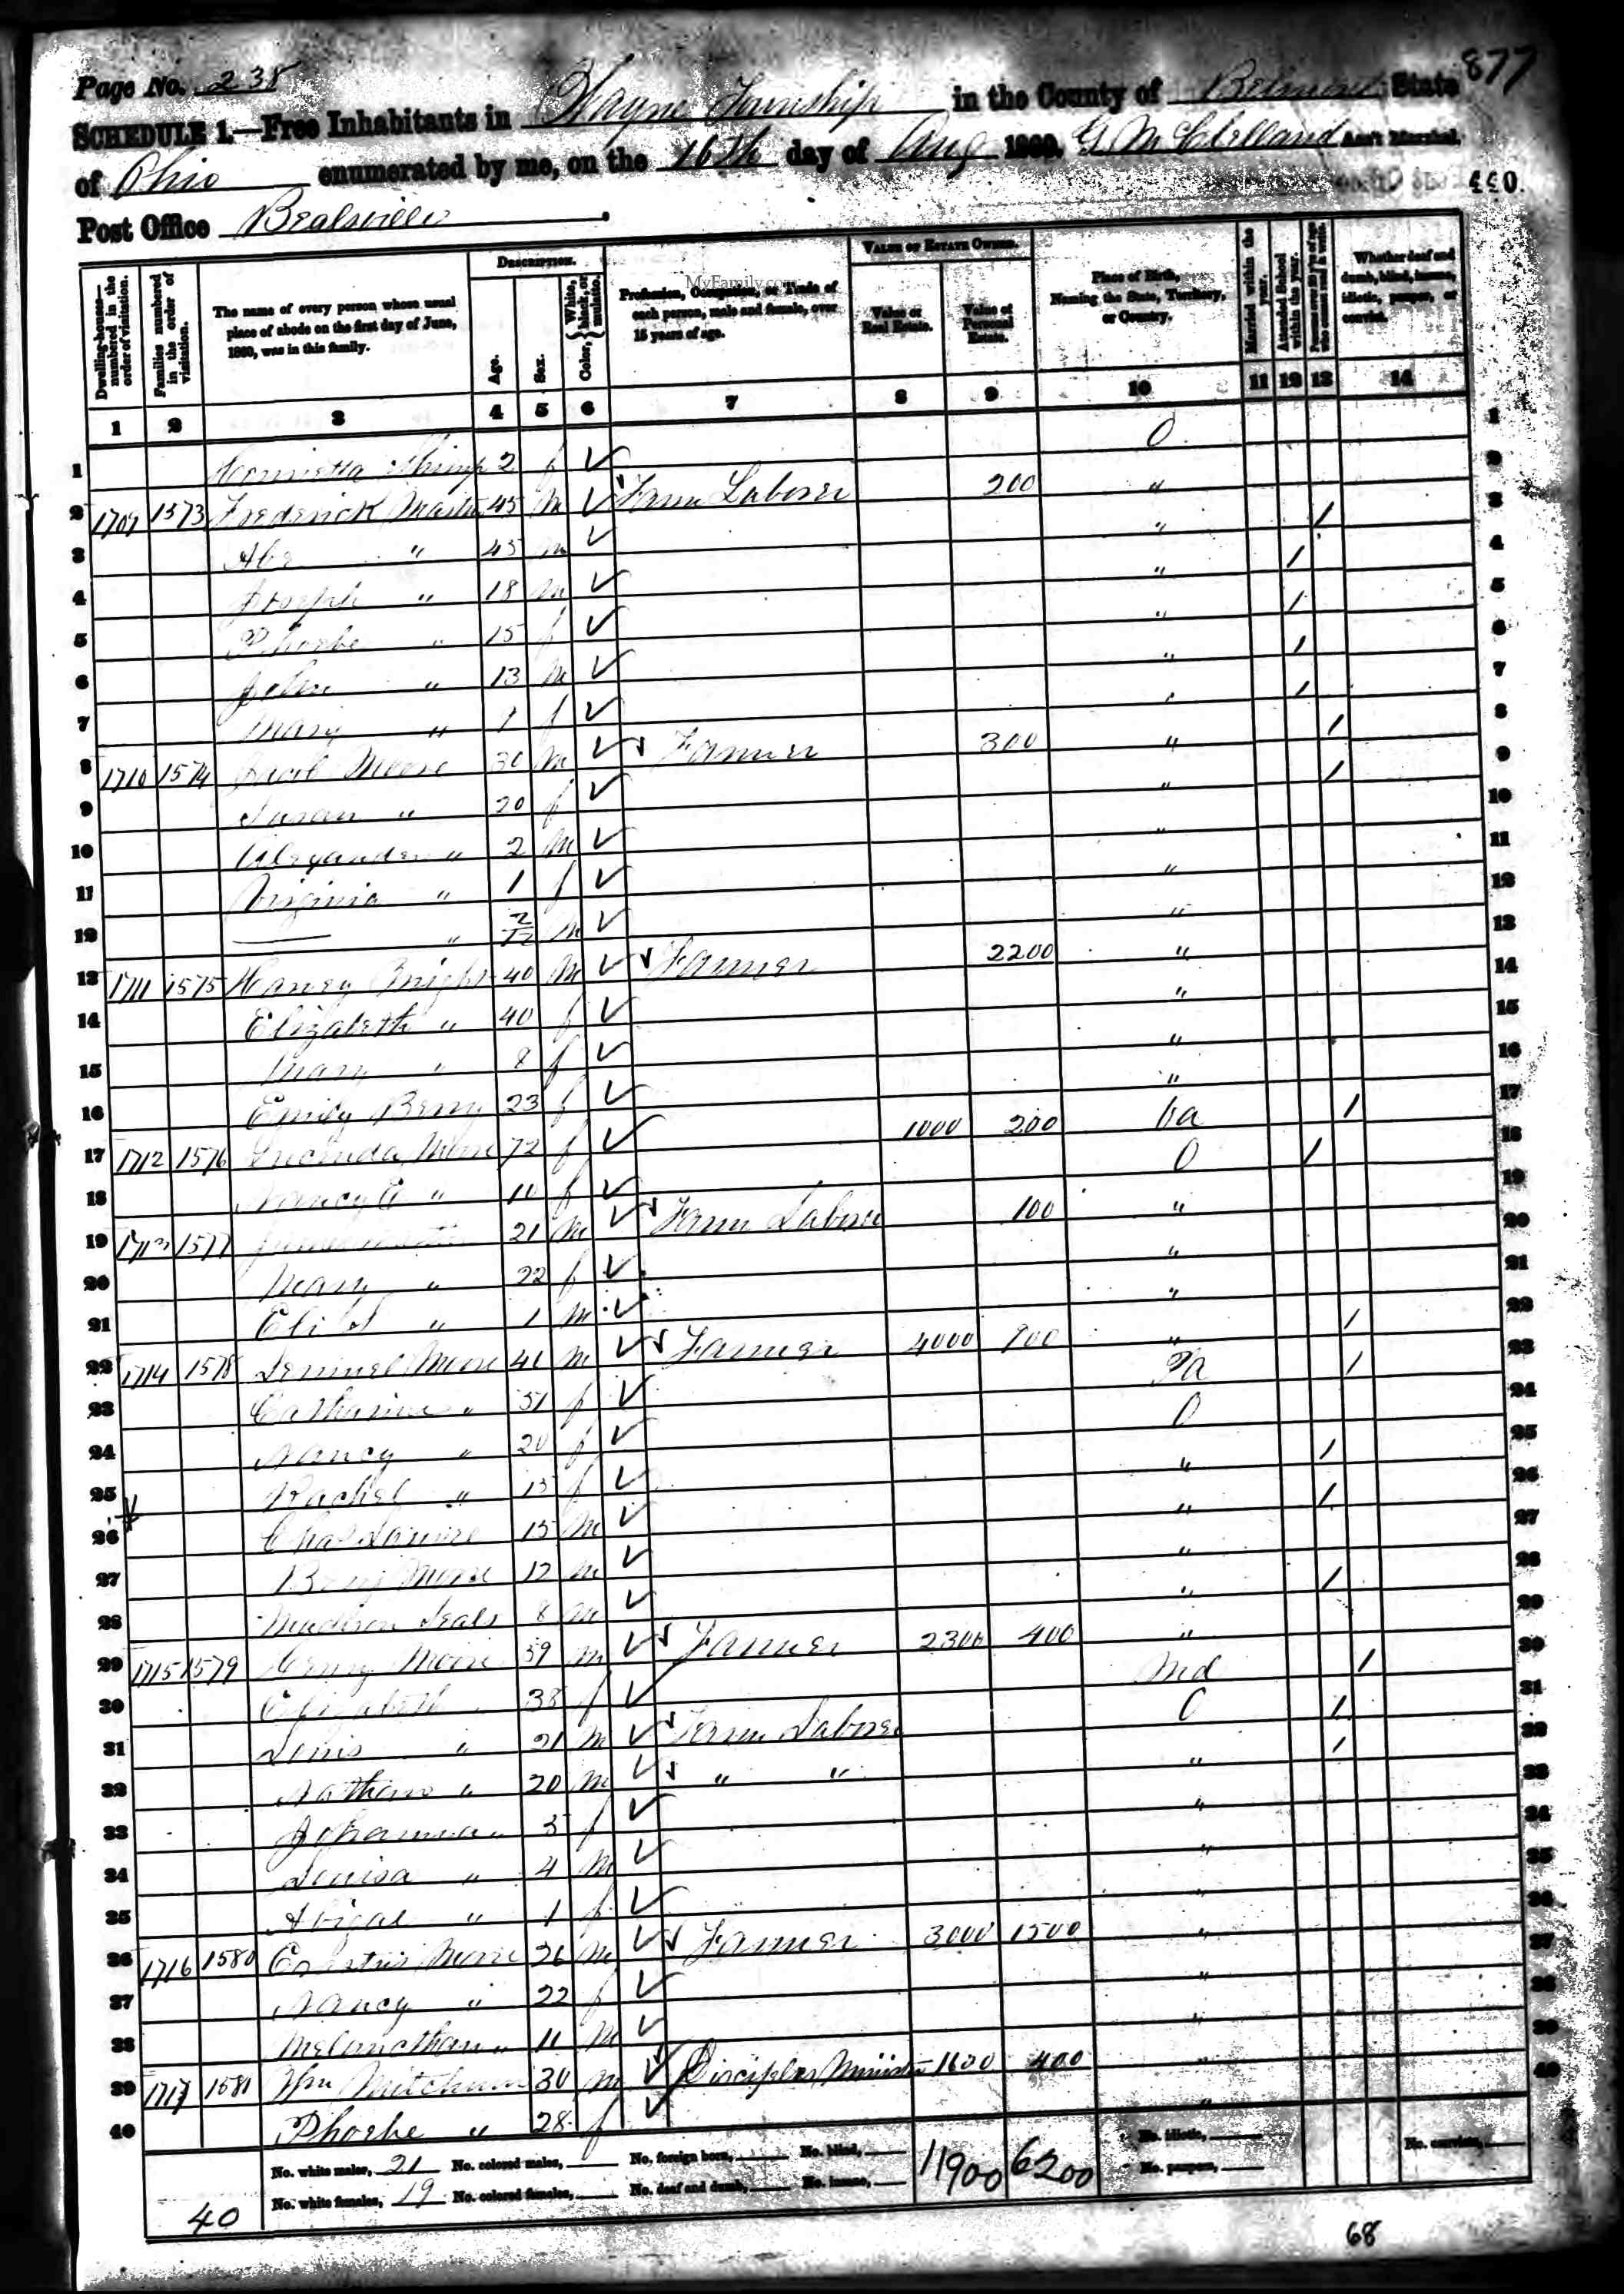 Page No. 238
877
SCHEDULE 1.—Free Inhabitants in Wayne Township in the County of Belmont State
of Ohio enumerated by me, on the 16th day of Aug 1860. G McClelland Ass't Marshal.
440.
Post Office Bealsville
MyFamily.com
Dwelling-houses—numbered in the order of visitation.
Families numbered in the order of visitation.
The name of every person whose usual place of abode on the first day of June, 1860, was in this family.
DESCRIPTION.
Age.
Sex.
Color, { White, black, or mulatto.
Profession, Occupation, or Trade of each person, male and female, over 15 years of age.
VALUE OF ESTATE OWNED.
Value of Real Estate.
Value of Personal Estate.
Place of Birth, Naming the State, Territory, or Country.
Married within the year.
Attended School within the year.
Persons over 20 y'rs of age who cannot read & write.
Whether deaf and dumb, blind, insane, idiotic, pauper, or convict.
1 2 3 4 5 6 7 8 9 10 11 12 13 14
1 Henrietta 2 f ✓ O 1
2 1709 1573 Frederick 45 m ✓ Farm Laborer 200 " 2
3 " 45 m ✓ " / 3
4 Joseph " 18 m ✓ " / 4
5 Phoebe " 15 f ✓ " / 5
6 John " 13 m ✓ " / 6
7 Mary " f ✓ " / 7
8 1710 1574 Jacob Moore 30 m ✓ Farmer 300 " / 8
9 Susan " 20 f ✓ " / 9
10 Alexander " 2 m ✓ " 10
11 Virginia " 1 f ✓ " 11
12 — " 2/12 m ✓ " 12
13 1711 1575 Harvey 40 m ✓ Farmer 2200 " 13
14 Elizabeth " 40 f ✓ " 14
15 Mary " 8 f ✓ " 15
16 Emily Berry 23 f ✓ " 16
17 1712 1576 Lucinda Moore 72 f ✓ 1000 200 Va / 17
18 Nancy " 10 f ✓ O / 18
19 1713 1577 21 m ✓ Farm Laborer 100 " 19
20 Mary " 22 f ✓ " 20
21 " 1 m ✓ " 21
22 1714 1578 Lemmel Moore 41 m ✓ Farmer 4000 900 " / 22
23 Catharine " 51 f ✓ Pa / 23
24 Nancy " 20 f ✓ O 24
25 Rachel " 15 f ✓ " / 25
26 Chas 15 m ✓ " / 26
27 Benj Moore 12 m ✓ " 27
28 Madison Seals 8 m ✓ " / 28
29 1715 1579 Henry Moore 39 m ✓ Farmer 2300 400 " 29
30 Elizabeth " 38 f ✓ Md / 30
31 " 21 m ✓ Farm Laborer O / 31
32 Nathan " 20 m ✓ " " " / 32
33 Johanna " f ✓ " 33
34 Louisa " 4 m ✓ " 34
35 Abigal " 1 f ✓ " 35
36 1716 1580 Moore 26 m ✓ Farmer 3000 1500 " 36
37 Nancy " 22 f ✓ " 37
38 Melancthan " 11 m ✓ " 38
39 1717 1581 Wm 30 m ✓ Disciples Minister 1600 400 " 39
40 Phoebe " 28 f ✓ " 40
No. white males, 21 No. colored males, No. foreign born, No. blind, 11900 6200 No. idiotic, No. convicts,
No. white females, 19 No. colored females, No. deaf and dumb, No. insane, No. paupers,
40
68